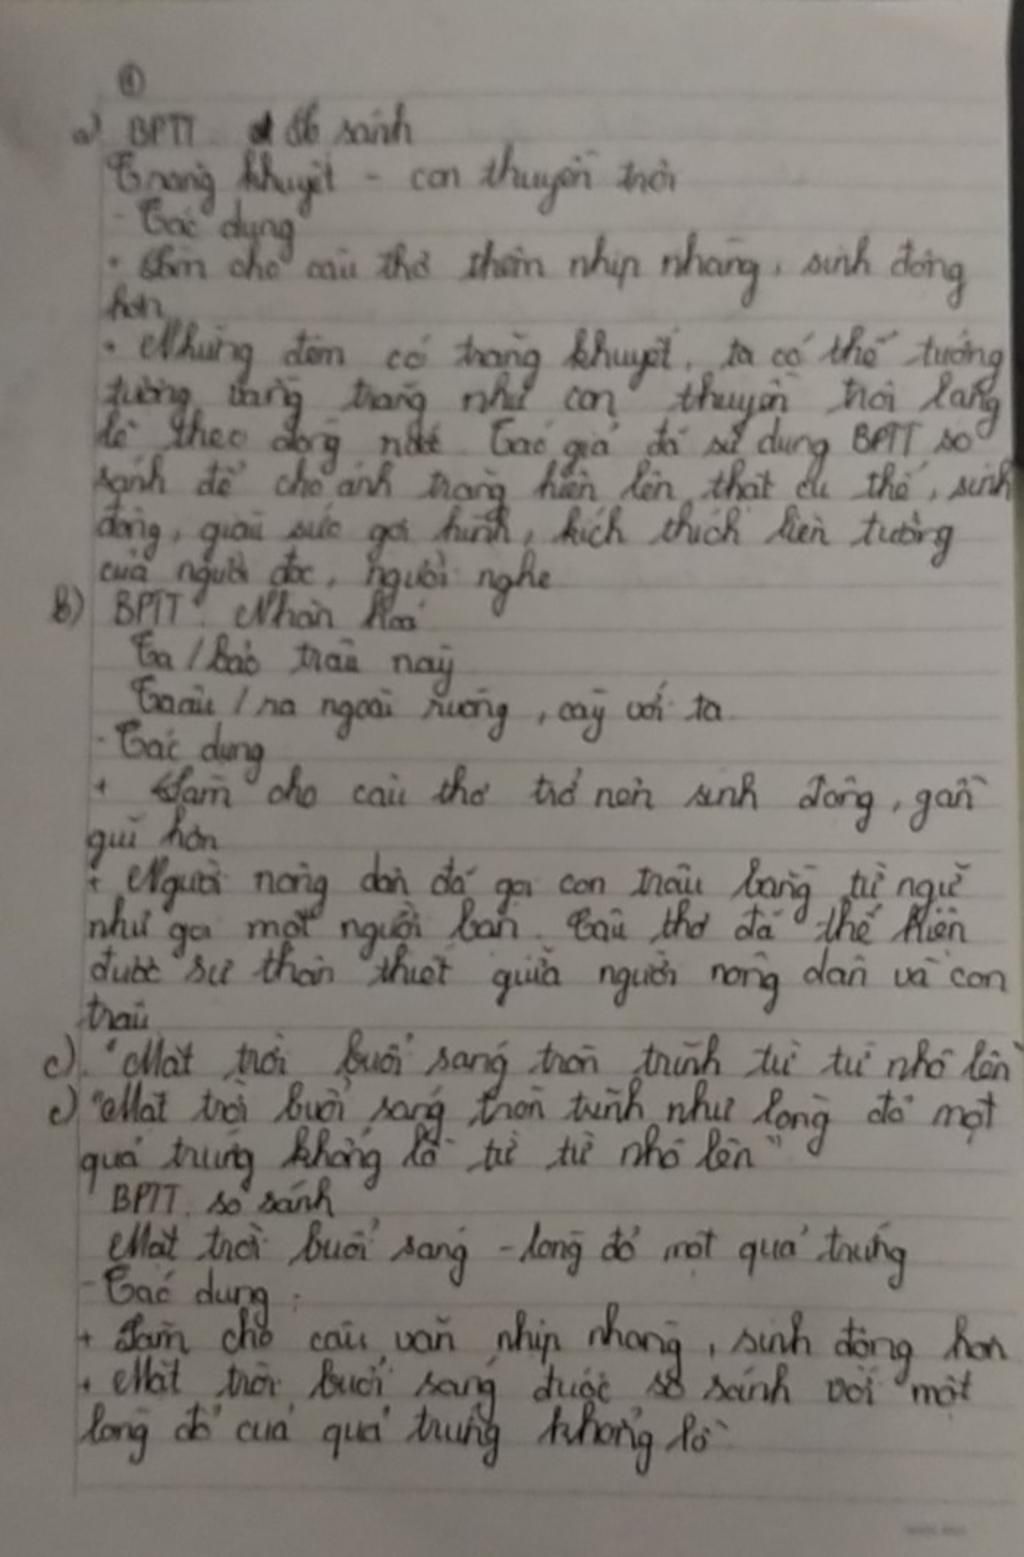 ①
a) BPTT so sánh
Trăng khuyết - con thuyền trôi
- Tác dụng
+ Làm cho câu thơ thêm nhịp nhàng, sinh động
hơn
+ Những đêm có trăng khuyết, ta có thể tưởng
tượng rằng trăng như con thuyền trôi lặng
lẽ theo dòng Tác giả đã sử dụng BPTT so
sánh để cho ánh trăng hiện lên thật cụ thể, sinh
động, giàu sức gợi hình, kích thích liên tưởng
của người đọc, người nghe
b) BPTT: Nhân hoá
Ta / bảo trâu này
Trâu / ra ngoài ruộng, cày với ta
- Tác dụng
+ Làm cho câu thơ trở nên sinh động, gần
gũi hơn
+ Người nông dân đã gọi con trâu bằng từ ngữ
như gọi một người bạn. Câu thơ đã thể hiện
được sự thân thiết giữa người nông dân và con
trâu
c) "Mặt trời buổi sáng tròn trĩnh từ từ nhô lên
c) "Mặt trời buổi sáng tròn trĩnh như lòng đỏ một
quả trứng khổng lồ từ từ nhô lên"
BPTT: so sánh
Mặt trời buổi sáng - lòng đỏ một quả trứng
- Tác dụng:
+ Làm cho câu văn nhịp nhàng, sinh động hơn
+ Mặt trời buổi sáng được so sánh với một
lòng đỏ của quả trứng khổng lồ